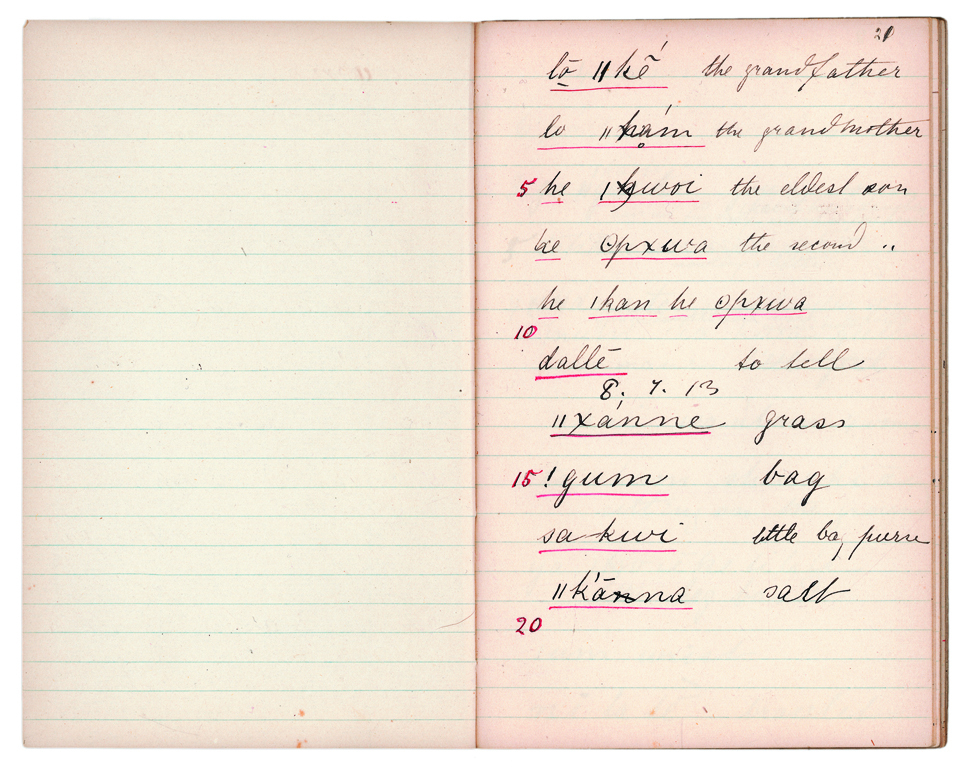 20
lō ǁkẽ́ the grandfather
lo ǁkạ́m the grandmother
5 he ǀkwoi the eldest son
he opxwa the second "
he ǀkan he opxwa
10
dallē to tell
8. 7. 13
ǁxánne grass
15 !gum bag
sa-kwi little bag purse
ǁk'ānna salt
20